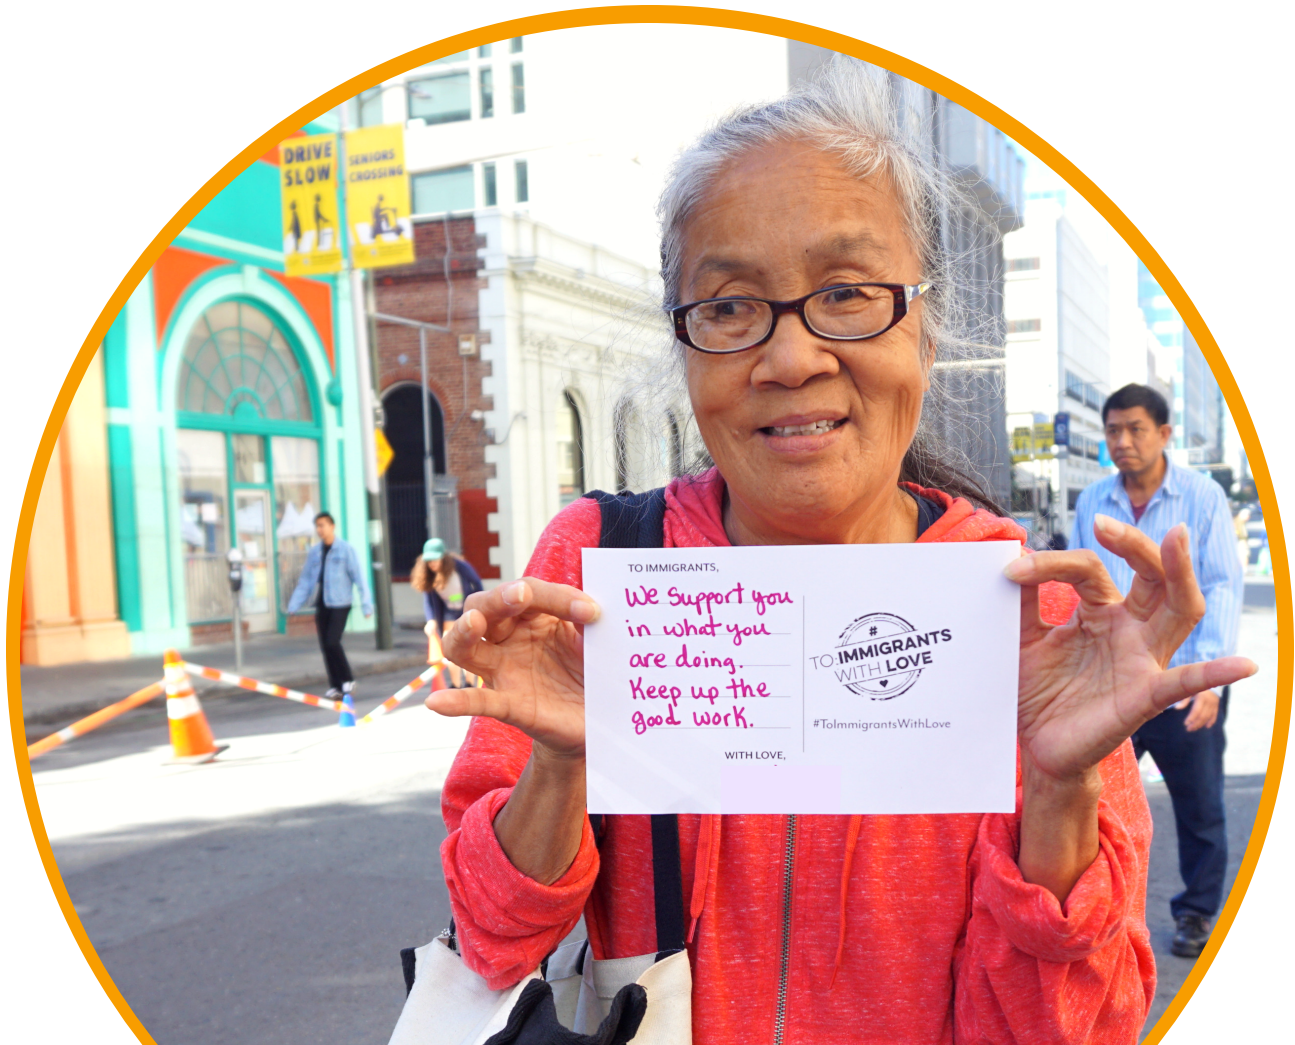 DRIVE
SLOW
SENIORS
CROSSING
TO IMMIGRANTS,
We support you
in what you
are doing.
Keep up the
good work.
WITH LOVE,
#
TO:IMMIGRANTS
WITH LOVE
#ToImmigrantsWithLove